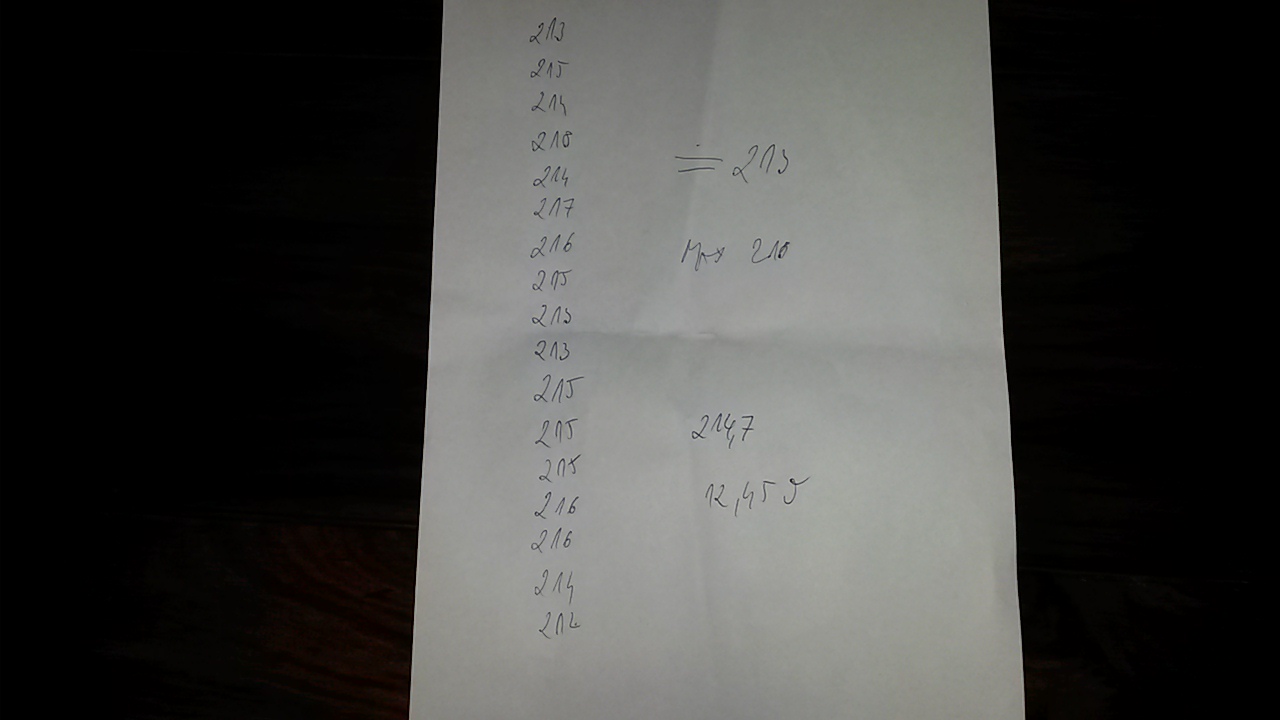 213
215
214
218
214
217
216
215
213
213
215
215
215
216
216
214
214
≐ 213
Max 218
214,7
12,45 V